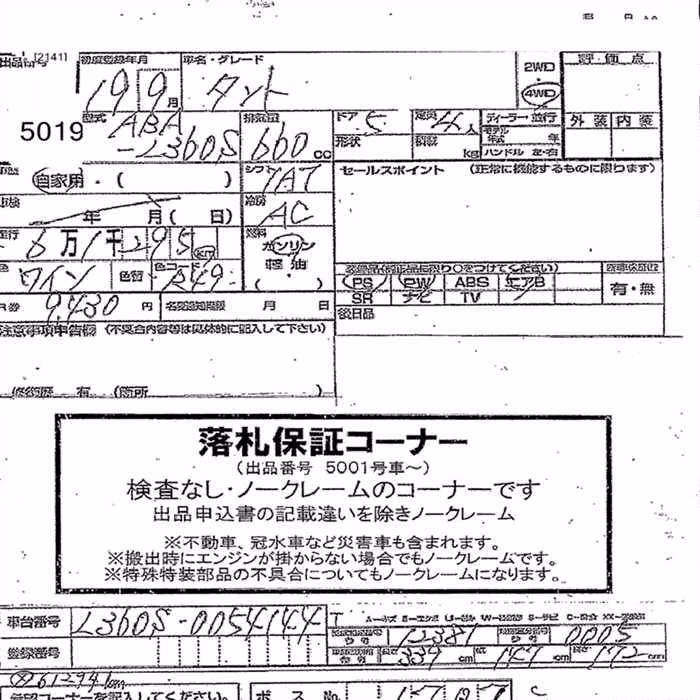 出品番号 [2141] 初度登録年月 車名・グレード 2WD 評価点
19 9月 タント 4WD
5019 型式 ABA-L360S 排気量 660cc ドア 5 定員 4人 ディーラー・並行 外装 内装
形状 積載 kg モデル年式 年 ハンドル 左・右
自家用・( ) シフト IAT セールスポイント (正常に機能するものに限ります)
車検 年 月( 日) 冷房 AC
走行 6万1千295km 燃料 ガソリン 軽油・( )
色 ワイン 色替 カラーコード 549 PS PW ABS エアB 有・無
R券 9,430円 名変通知期限 月 日 SR ナビ TV
注意事項申告欄 (不具合内容等は具体的に記入して下さい) 後日品
修復歴 有 (箇所 )
落札保証コーナー
(出品番号 5001号車〜)
検査なし・ノークレームのコーナーです
出品申込書の記載違いを除きノークレーム
※不動車、冠水車など災害車も含まれます。
※搬出時にエンジンが掛からない場合でもノークレームです。
※特殊特装部品の不具合についてもノークレームになります。
車台番号 L360S-0054144
登録番号 12381 0005
長さ 339cm 147cm 172cm